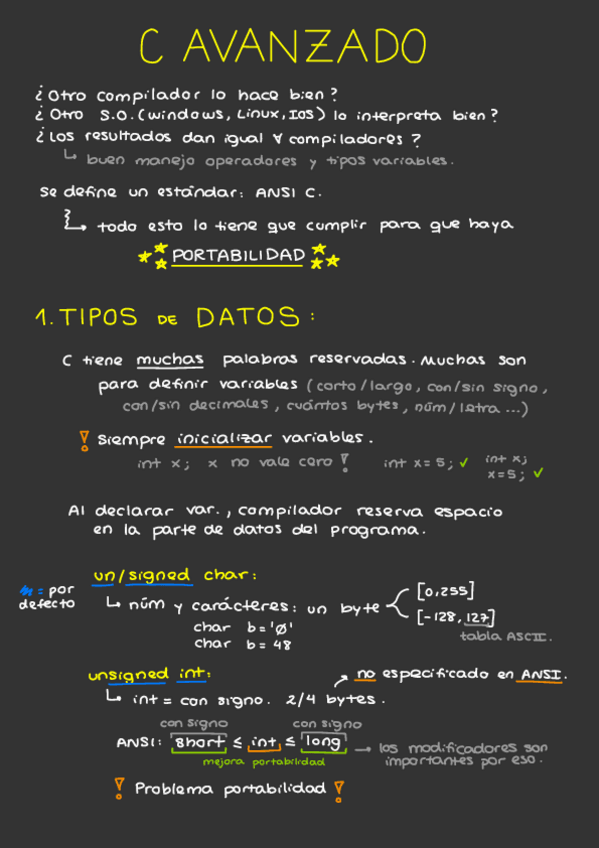 C AVANZADO
¿Otro compilador lo hace bien?
¿Otro S.O. (Windows, Linux, IOS) lo interpreta bien?
¿Los resultados dan igual ∀ compiladores?
↳ buen manejo operadores y tipos variables.
Se define un estándar: ANSI C.
↳ todo esto lo tiene que cumplir para que haya
PORTABILIDAD
1. TIPOS DE DATOS:
C tiene muchas palabras reservadas. Muchas son
para definir variables (corto/largo, con/sin signo,
con/sin decimales, cuántos bytes, núm/letra ...)
! Siempre inicializar variables.
int x; x no vale cero! int x=5; ✓ int x;
x=5; ✓
Al declarar var., compilador reserva espacio
en la parte de datos del programa.
un/signed char:
= por
defecto
↳ núm y carácteres: un byte
[0,255]
[-128, 127]
tabla ASCII.
char b='0'
char b=48
unsigned int:
no especificado en ANSI.
↳ int = con signo. 2/4 bytes.
con signo con signo
ANSI: short ≤ int ≤ long → los modificadores son
importantes por eso.
mejora portabilidad
! Problema portabilidad !